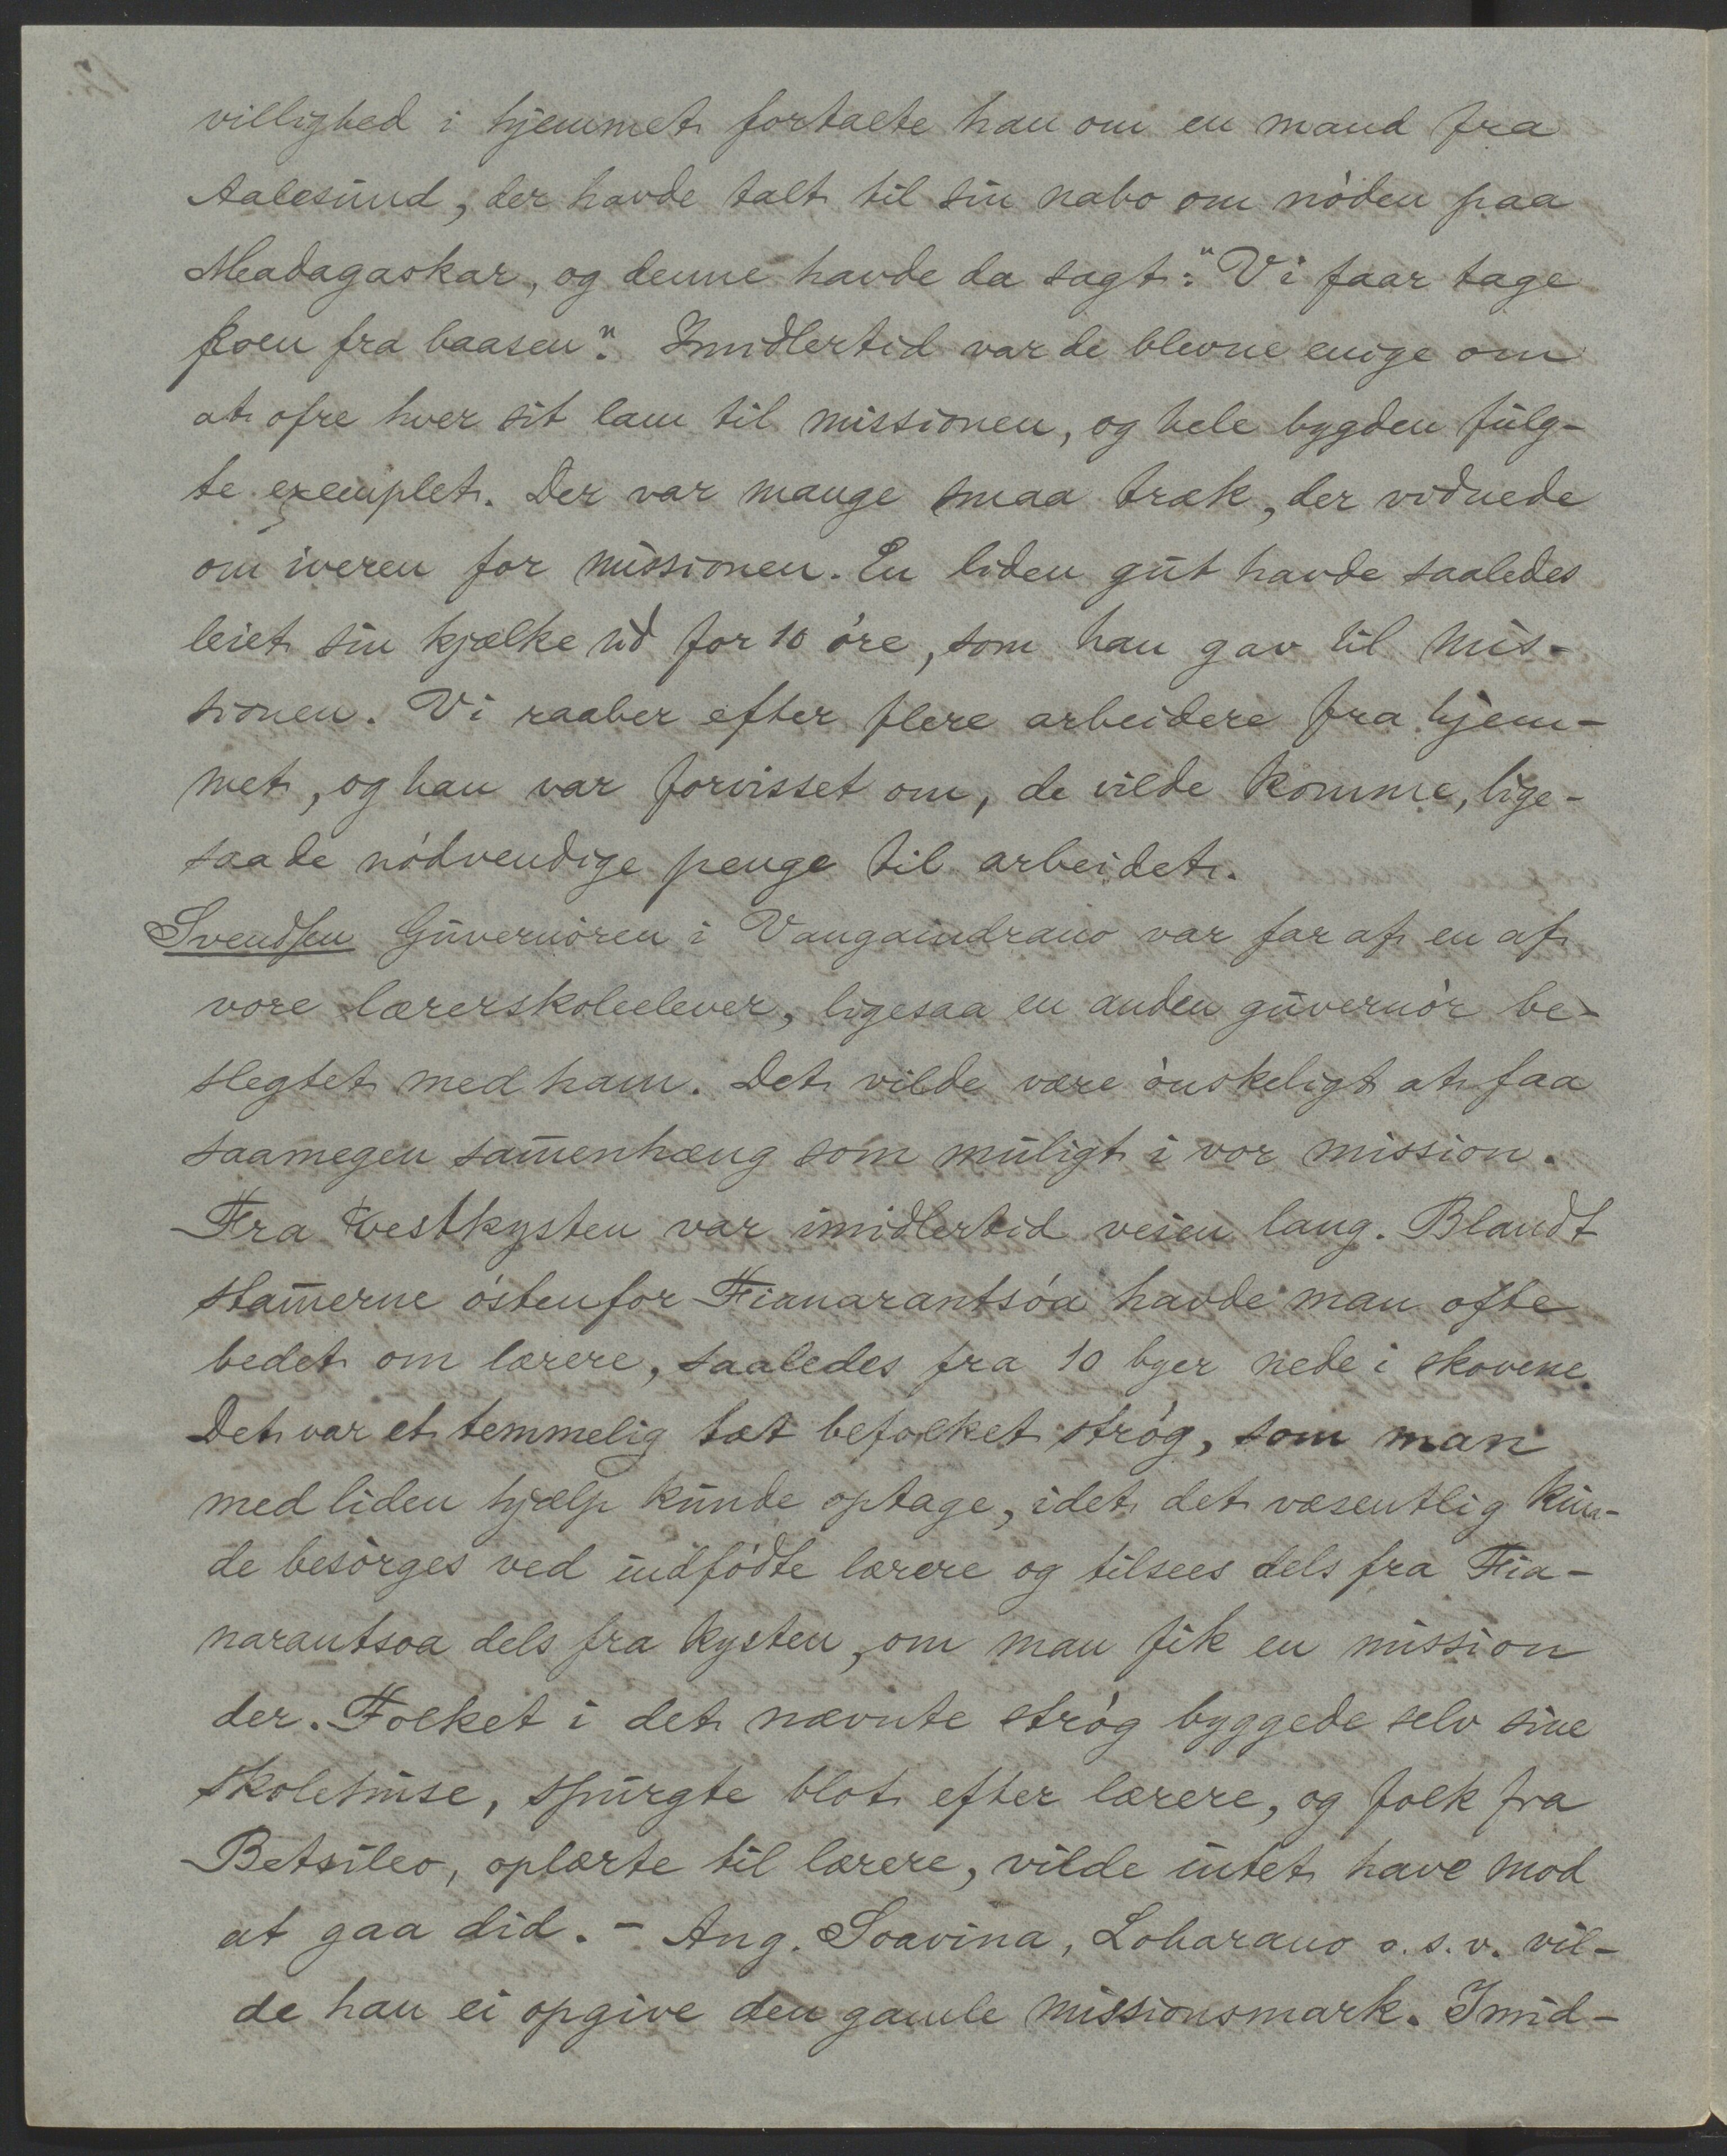 villighed i hjemmet fortalte han om en mand fra
Aalesund, der havde talt til sin nabo om nöden paa
Madagaskar, og denne havde da sagt: "Vi faar tage
koen fra baasen". Imidlertid var de blevne enige om
at ofre hver sit lam til missionen, og hele bygden fulg-
te exemplet. Der var mange smaa træk, der vidnede
om iveren for missionen. En liden gut havde saaledes
leiet sin kjælke ud for 10 öre, som han gav til mis-
sionen. Vi raaber efter flere arbeidere fra hjem-
met, og han var forvisset om, de vilde komme, lige-
saa de nödvendige penge til arbeidet.
Svendsen Guvernören i Vangaindrano var far af en af
vore lærerskoleelever, ligesaa en anden guvernör be-
slegtet med ham. Det vilde være önskeligt at faa
saamegen sam̄enhæng som muligt i vor mission.
Fra Vestkysten var imidlertid veien lang. Blandt
stam̄erne östenfor Fianarantsóa havde man ofte
bedet om lærere, saaledes fra 10 byer nede i skovene.
Det var et temmelig tæt befolket strög, som man
med liden hjælp kunde optage, idet det væsentlig kun-
de besörges ved indfödte lærere og tilsees dels fra Fia-
narantsoa dels fra kysten, om man fik en mission
der. Folket i det nævnte strög byggede selv sine
skolehuse, spurgte blot efter lærere, og folk fra
Betsileo, oplærte til lærere, vilde intet have mod
at gaa did. - Ang. Soavina, Loharano o. s. v. vil-
de han ei opgive den gamle missionsmark. Imid-